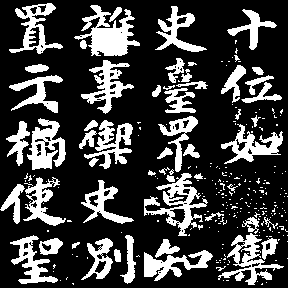 十位如禦
史臺眾尊知
雜事禦史別
置榻使聖